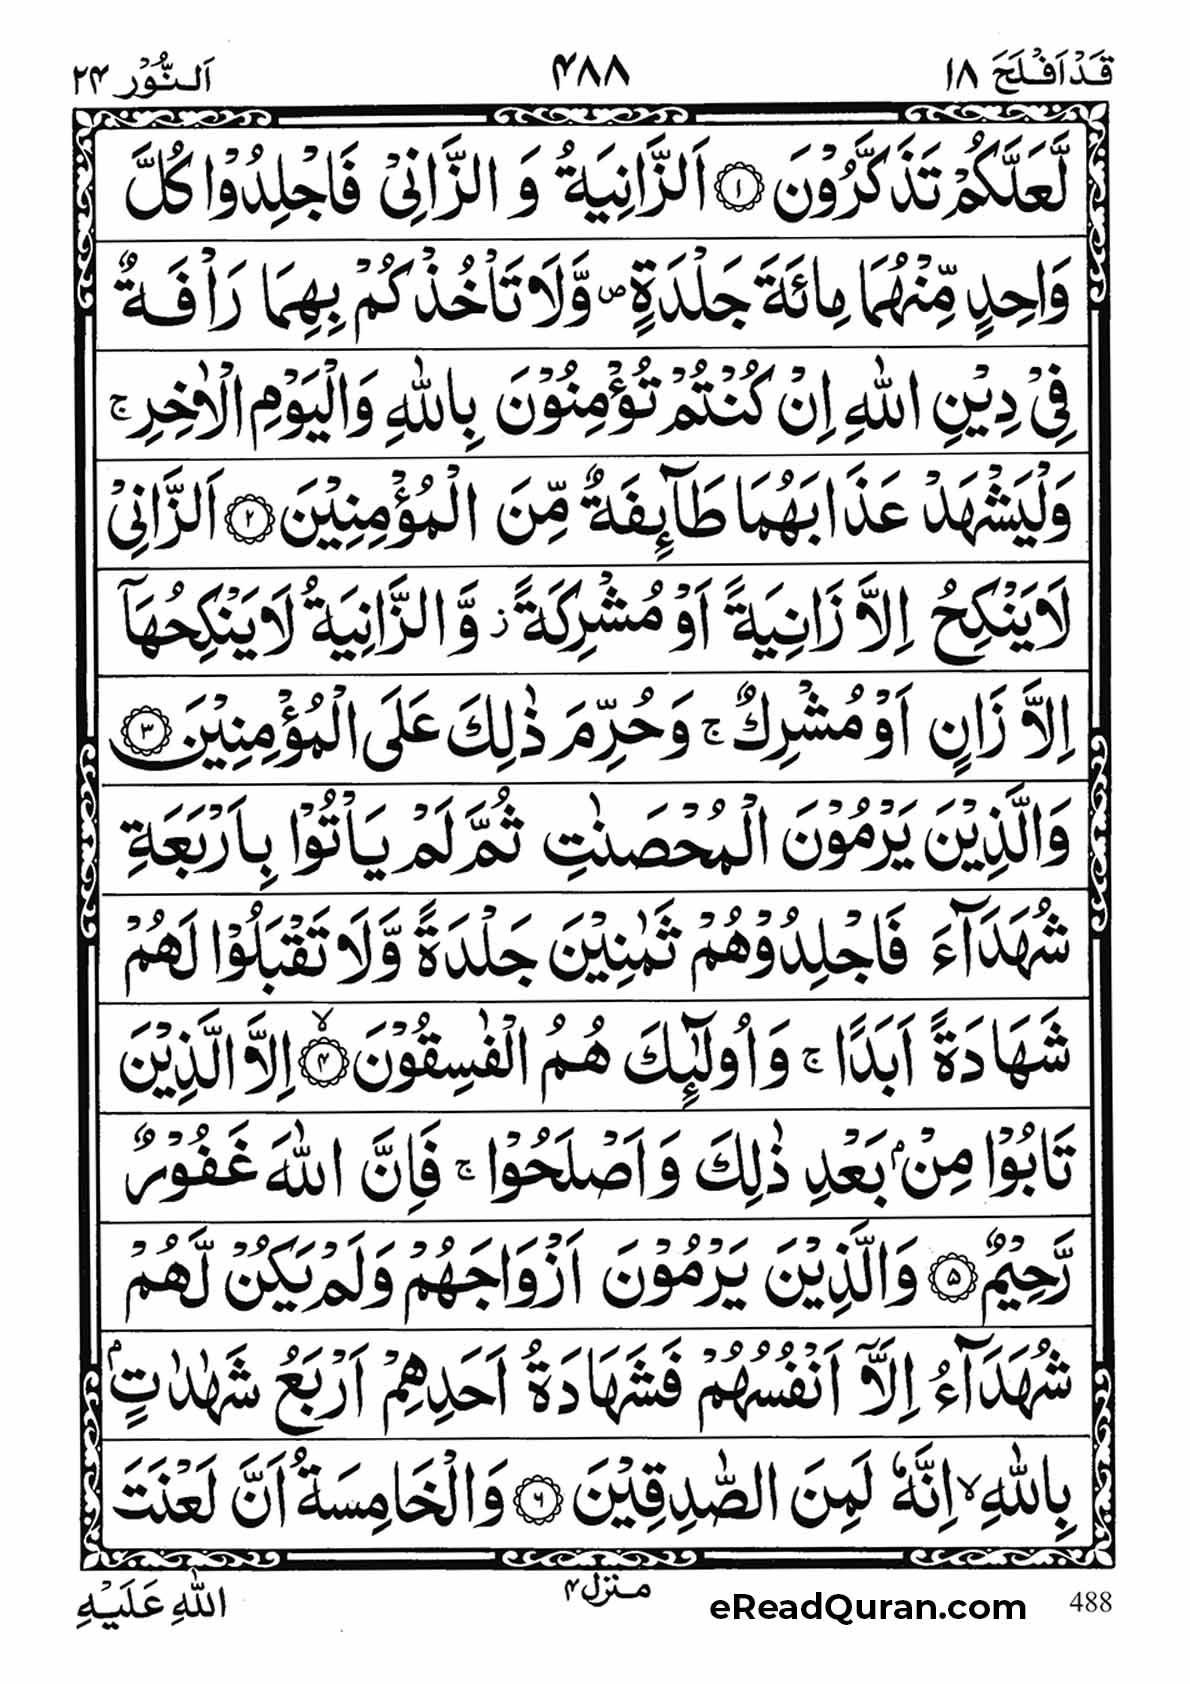 قَدْ اَفْلَحَ ١٨ ۴٨٨ اَلنُّوْر ٢۴
لَّعَلَّكُمْ تَذَكَّرُوْنَ ۝١ اَلزَّانِيَةُ وَ الزَّانِيْ فَاجْلِدُوْا كُلَّ
وَاحِدٍ مِّنْهُمَا مِائَةَ جَلْدَةٍ ۪ وَّلَا تَاْخُذْكُمْ بِهِمَا رَاْفَةٌ
فِيْ دِيْنِ اللّٰهِ اِنْ كُنْتُمْ تُؤْمِنُوْنَ بِاللّٰهِ وَالْيَوْمِ الْاٰخِرِ ۚ
وَلْيَشْهَدْ عَذَابَهُمَا طَآئِفَةٌ مِّنَ الْمُؤْمِنِيْنَ ۝٢ اَلزَّانِيْ
لَا يَنْكِحُ اِلَّا زَانِيَةً اَوْ مُشْرِكَةً ز وَّ الزَّانِيَةُ لَا يَنْكِحُهَآ
اِلَّا زَانٍ اَوْ مُشْرِكٌ ۚ وَحُرِّمَ ذٰلِكَ عَلَى الْمُؤْمِنِيْنَ ۝٣
وَالَّذِيْنَ يَرْمُوْنَ الْمُحْصَنٰتِ ثُمَّ لَمْ يَاْتُوْا بِاَرْبَعَةِ
شُهَدَآءَ فَاجْلِدُوْهُمْ ثَمٰنِيْنَ جَلْدَةً وَّلَا تَقْبَلُوْا لَهُمْ
شَهَادَةً اَبَدًا ۚ وَاُولٰٓئِكَ هُمُ الْفٰسِقُوْنَ ۝۴ ۙ اِلَّا الَّذِيْنَ
تَابُوْا مِنْۢ بَعْدِ ذٰلِكَ وَاَصْلَحُوْا ۚ فَاِنَّ اللّٰهَ غَفُوْرٌ
رَّحِيْمٌ ۝۵ وَالَّذِيْنَ يَرْمُوْنَ اَزْوَاجَهُمْ وَلَمْ يَكُنْ لَّهُمْ
شُهَدَآءُ اِلَّآ اَنْفُسُهُمْ فَشَهَادَةُ اَحَدِهِمْ اَرْبَعُ شَهٰدٰتٍۭ
بِاللّٰهِ ۙ اِنَّهٗ لَمِنَ الصّٰدِقِيْنَ ۝۶ وَالْخَامِسَةُ اَنَّ لَعْنَتَ
488 eReadQuran.com منزل ۴ اللّٰهِ عَلَيْهِ